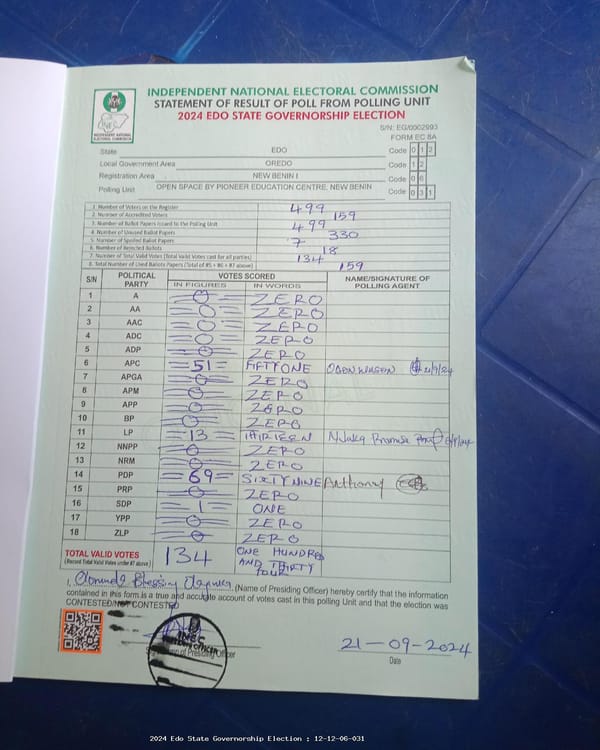 INDEPENDENT NATIONAL ELECTORAL COMMISSION
STATEMENT OF RESULT OF POLL FROM POLLING UNIT
2024 EDO STATE GOVERNORSHIP ELECTION
S/N: EG/0002993
FORM EC 8A
INEC
INDEPENDENT NATIONAL ELECTORAL COMMISSION
State EDO Code 0 1 2
Local Government Area OREDO Code 1 2
Registration Area NEW BENIN I Code 0 6
Polling Unit OPEN SPACE BY PIONEER EDUCATION CENTRE, NEW BENIN Code 0 3 1
1. Number of Voters on the Register 499
2. Number of Accredited Voters 159
3. Number of Ballot Papers Issued to the Polling Unit 499
4. Number of Unused Ballot Papers 330
5. Number of Spoiled Ballot Papers 7
6. Number of Rejected Ballots 18
7. Number of Total Valid Votes (Total Valid Votes cast for all parties) 134
8. Total Number of Used Ballots Papers (Total of #5 + #6 + #7 above) 159
S/N POLITICAL PARTY VOTES SCORED NAME/SIGNATURE OF POLLING AGENT
IN FIGURES IN WORDS
1 A 0 ZERO
2 AA 0 ZERO
3 AAC 0 ZERO
4 ADC 0 ZERO
5 ADP 0 ZERO
6 APC 51 FIFTY ONE
7 APGA 0 ZERO
8 APM 0 ZERO
9 APP 0 ZERO
10 BP 0 ZERO
11 LP 13 THIRTEEN
12 NNPP 0 ZERO
13 NRM 0 ZERO
14 PDP 69 SIXTY NINE Anthony
15 PRP 0 ZERO
16 SDP 1 ONE
17 YPP 0 ZERO
18 ZLP 0 ZERO
TOTAL VALID VOTES 134 ONE HUNDRED AND THIRTY FOUR
(Record Total Valid Votes under #7 above)
I, Blessing (Name of Presiding Officer) hereby certify that the information
contained in this form is a true and accurate account of votes cast in this polling Unit and that the election was
CONTESTED/NOT CONTESTED
INEC
Signature of Presiding Officer
21-09-2024
Date
2024 Edo State Governorship Election : 12-12-06-031